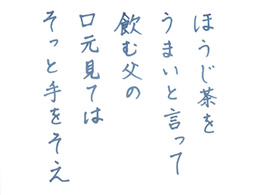 ほうじ茶を
うまいと言って
飲む父の
口元見ては
そっと手をそえ